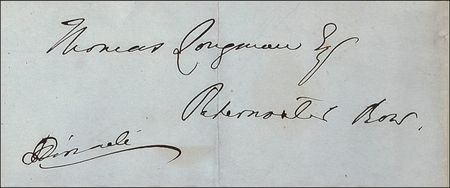 Thomas Longman Esq
Paternoster Row.
Disraeli